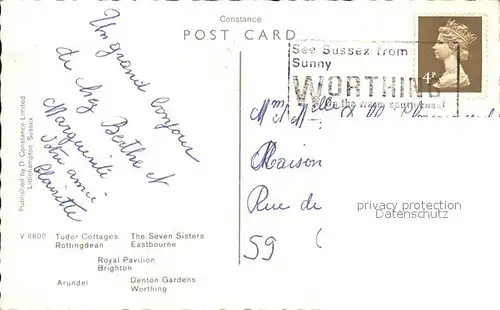 Constance
POST CARD
See Sussex from
Sunny
WORTHING
on the warm south coast
4P
Un grand bonjour
de chez Berthe et
Marguerite
Votre amie
Clairette
Maison
Rue de
59
privacy protection
Datenschutz
Published by D. Constance Limited
Littlehampton, Sussex
V 8800 Tudor Cottages The Seven Sisters
Rottingdean Eastbourne
Royal Pavilion
Brighton
Arundel Denton Gardens
Worthing